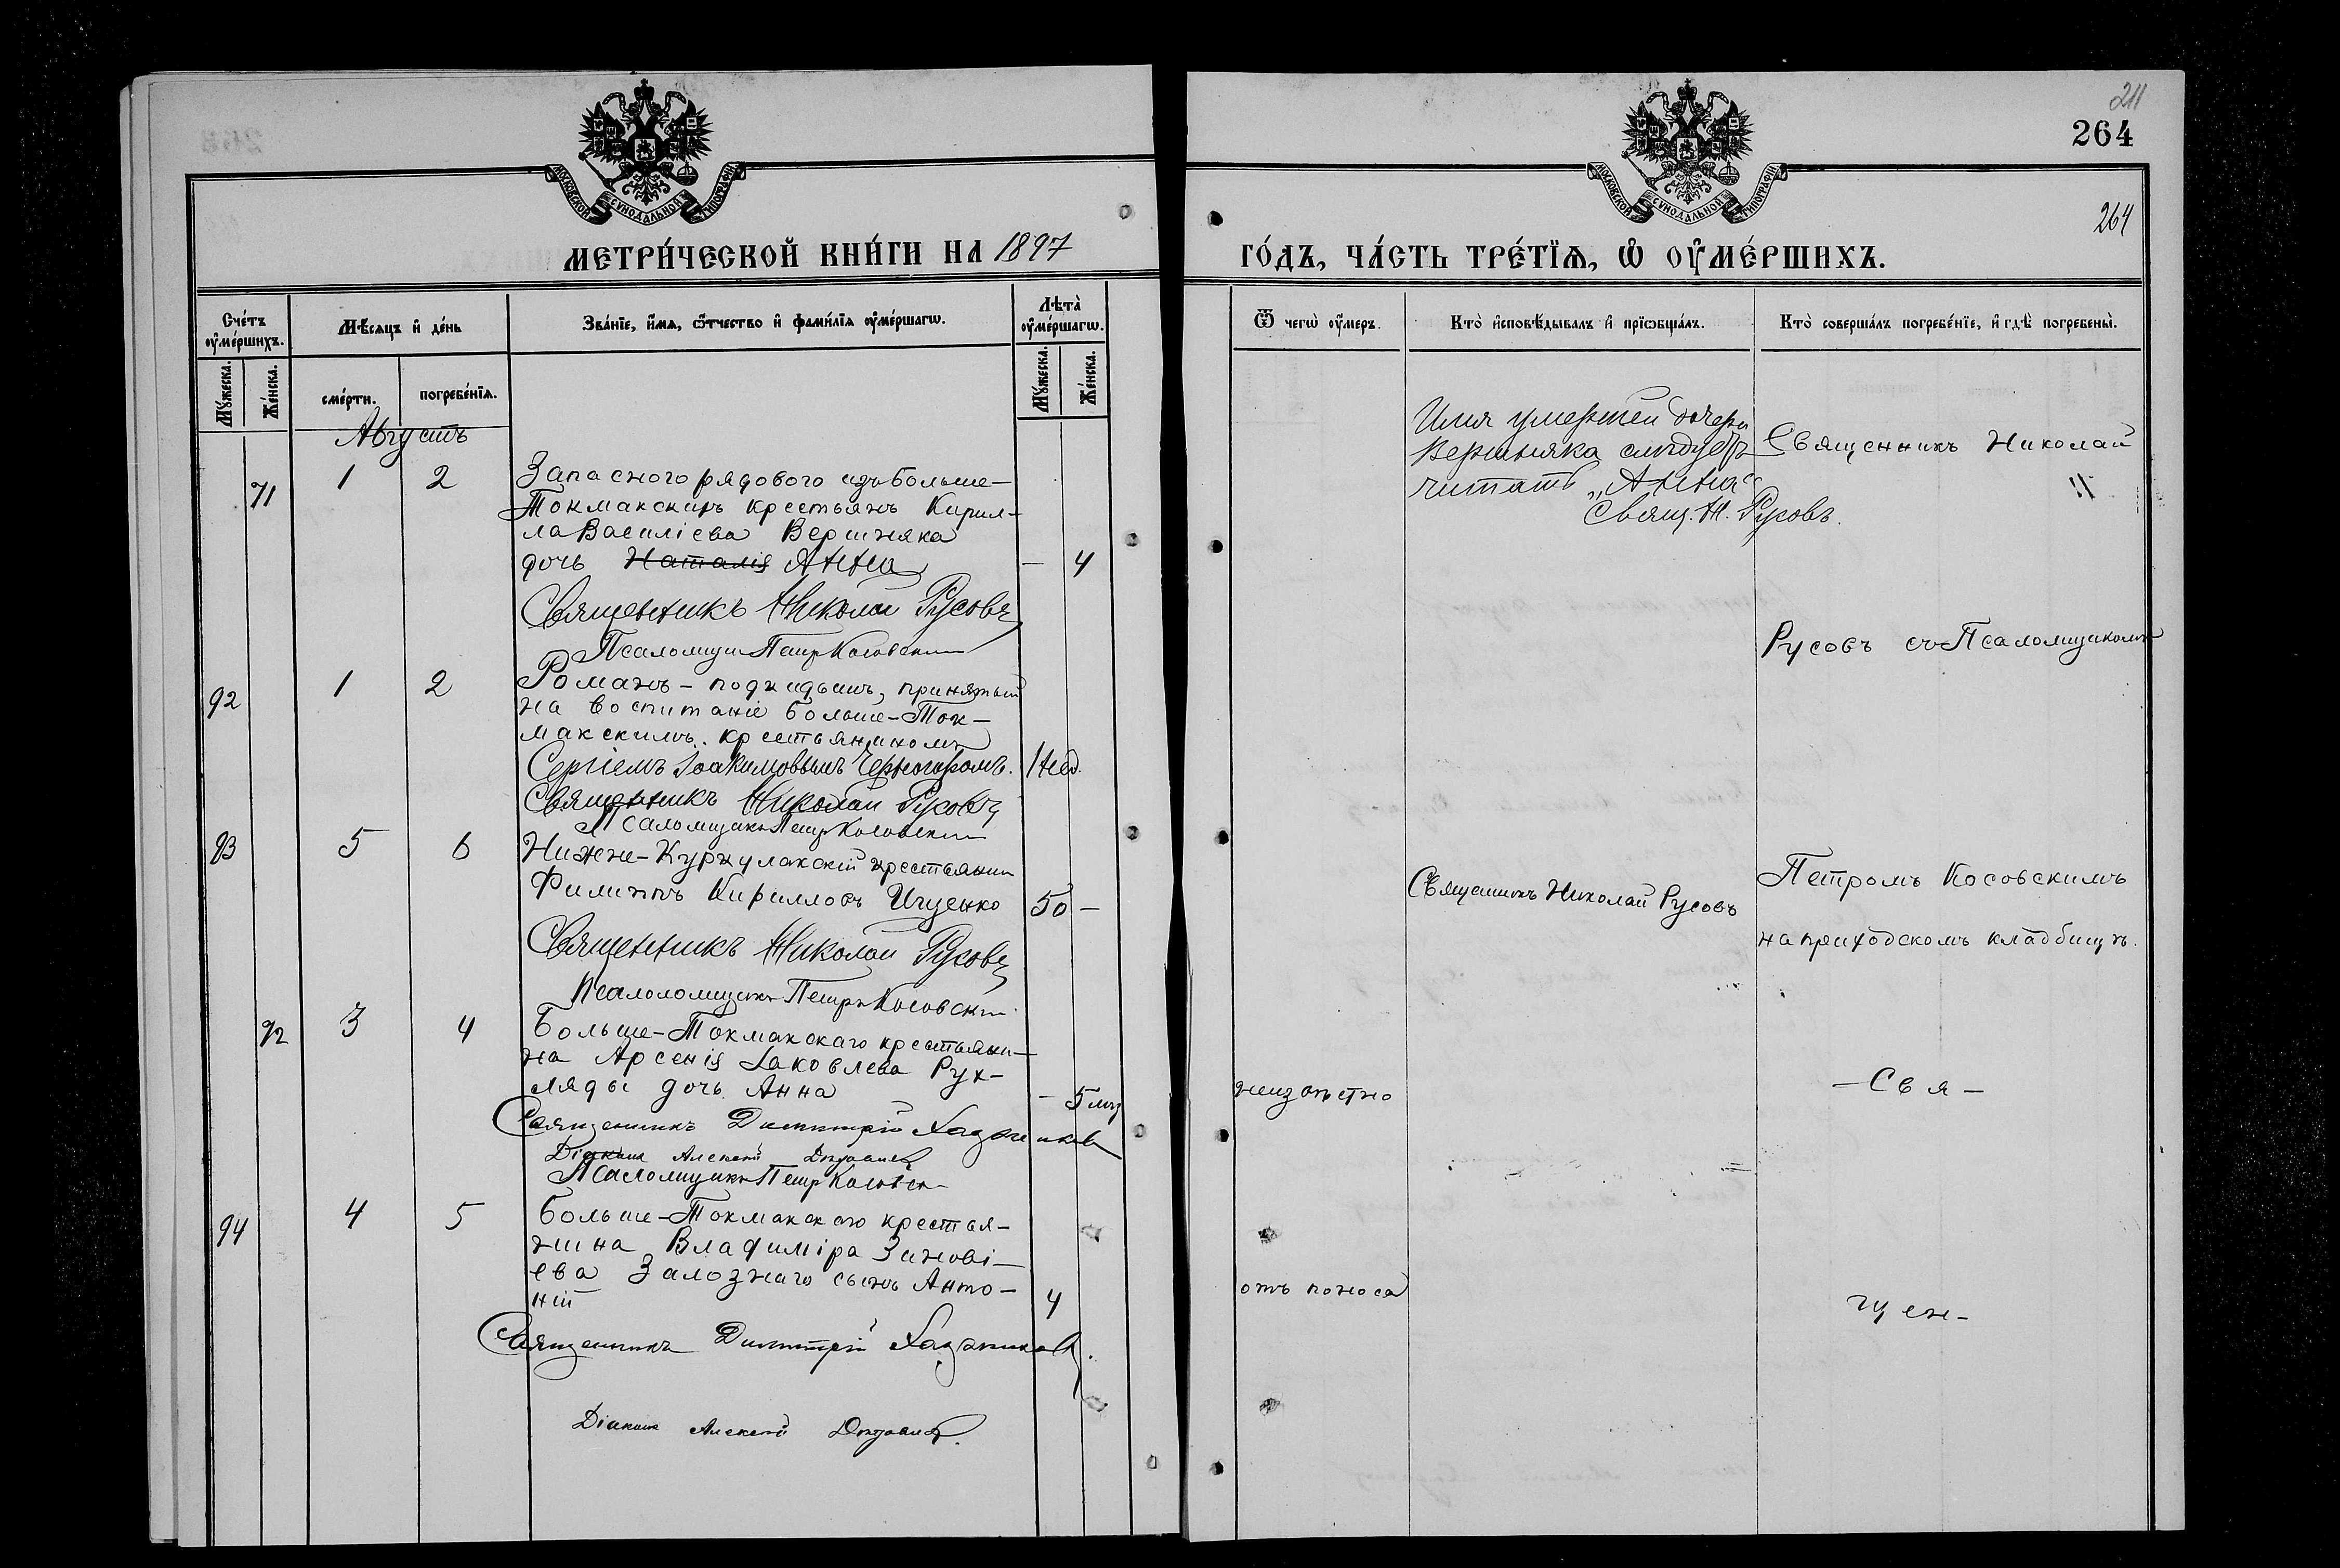 МОСКОВСКОЙ СѴНОДАЛЬНОЙ ТИПОГРАФІИ
МЕТРИ́ЧЕСКОЙ КНИ́ГИ НА 1897
Сче́тъ ᲂу҆ме́ршихъ.
Мѣ́сяцъ и҆ де́нь
Зва́нїе, и҆́мѧ, ѻ҆́тчество и҆ фами́лїѧ ᲂу҆ме́ршагѡ.
Лѣта̀ ᲂу҆ме́ршагѡ.
Мꙋ́жеска.
Же́нска.
сме́рти.
погребе́нїѧ.
Мꙋ́жеска.
Же́нска.
Августъ
71 1 2 Запасного рядового изъ больше-
Токмакскихъ крестьянъ Кирил-
ла Василіева Вершняка
дочь Наталія Анна — 4
Священникъ Николай Русовъ
Псаломщикъ Петръ Косовскій
92 1 2 Романъ - подкидышъ, принятый
на воспитаніе больше-Ток-
макскимъ крестьяниномъ
Сергіемъ Іоакимовымъ 1 нед.
Священникъ Николай Русовъ
Псаломщикъ Петръ Косовскій
93 5 6 Нижне-Куркулакскій крестьянинъ
Филиппъ Кирилловъ Ищенко 50 —
Священникъ Николай Русовъ
Псаломщикъ Петръ Косовскій
72 3 4 Больше-Токмакскаго крестьяни-
на Арсенія Іаковлева Рух-
ляды дочь Анна — 5 мц
Священникъ Димитрій
Діаконъ Алексій
Псаломщикъ Петръ Косовск
94 4 5 Больше-Токмакскаго крестья-
нина Владиміра Зинові-
ева Залознаго сынъ Анто-
ній 4
Священникъ Димитрій
Діаконъ Алексій
211
264
МОСКОВСКОЙ СѴНОДАЛЬНОЙ ТИПОГРАФІИ
264
ГО́ДЪ, ЧА́СТЬ ТРЕ́ТЇѦ, Ѡ҆ ОУ҆МЕ́РШИХЪ.
Ѿ чегѡ̀ ᲂу҆́меръ.
Кто̀ и҆сповѣ́дывалъ и҆ прїѡбща́лъ.
Кто̀ соверша́лъ погребе́нїе, и҆ гдѣ̀ погребены̀.
Имя умершей дочери
Вершняка слѣдуетъ
читать „Анна“
Свящ. Н. Русовъ.
Священникъ Николай
Русовъ съ Псаломщикомъ
Священникъ Николай Русовъ
Петромъ Косовскимъ
на приходскомъ кладбищѣ.
неизвѣстно
— Свя —
отъ поноса
щен-